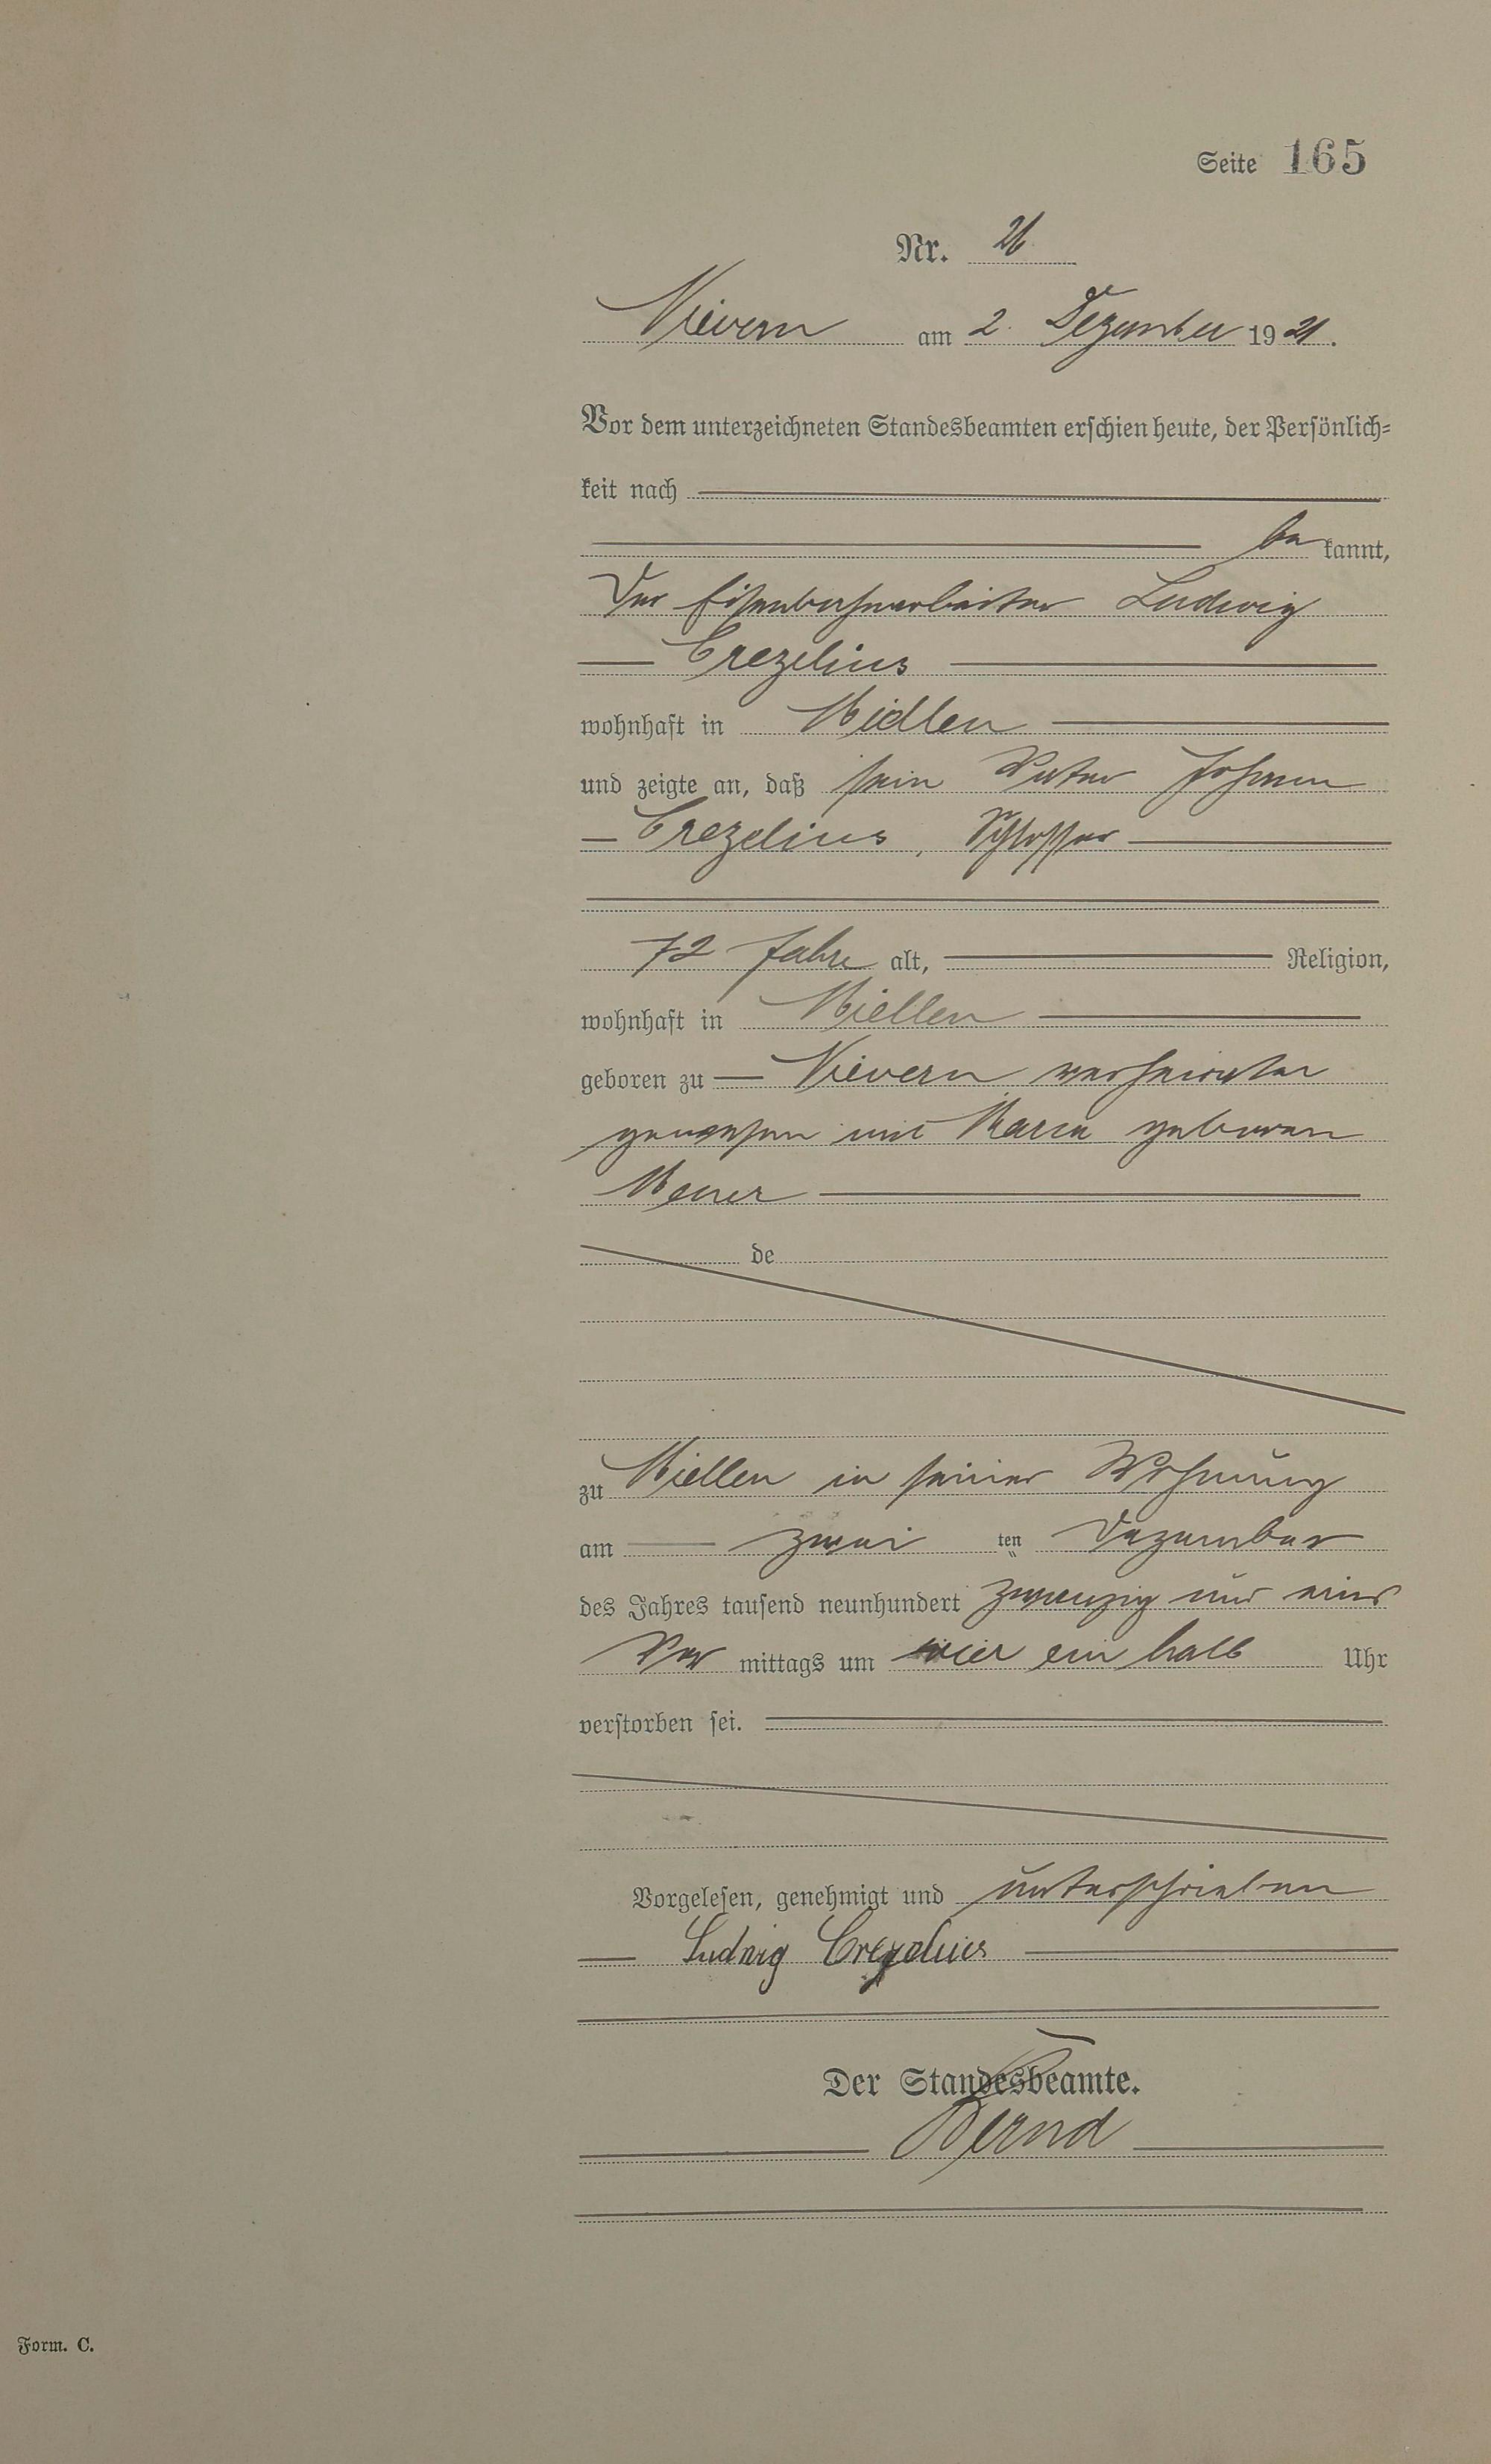 Seite 165
Nr. 26
Nievern am 2. Dezember 1921.
Vor dem unterzeichneten Standesbeamten erschien heute, der Persönlich-
keit nach
be kannt,
der Eisenbahnarbeiter Ludwig
Crezelius
wohnhaft in Miellen
und zeigte an, daß sein Vater Johann
Crezelius, Schlosser
72 Jahre alt, Religion,
wohnhaft in Miellen
geboren zu Nievern verheiratet
gewesen mit Maria geboren
de
zu Miellen in seiner Wohnung
am zwei ten Dezember
des Jahres tausend neunhundert zwanzig und eins
Vor mittags um vier ein halb Uhr
verstorben sei.
Vorgelesen, genehmigt und unterschrieben
Ludwig Crezelius
Der Standesbeamte.
Bernd
Form. C.